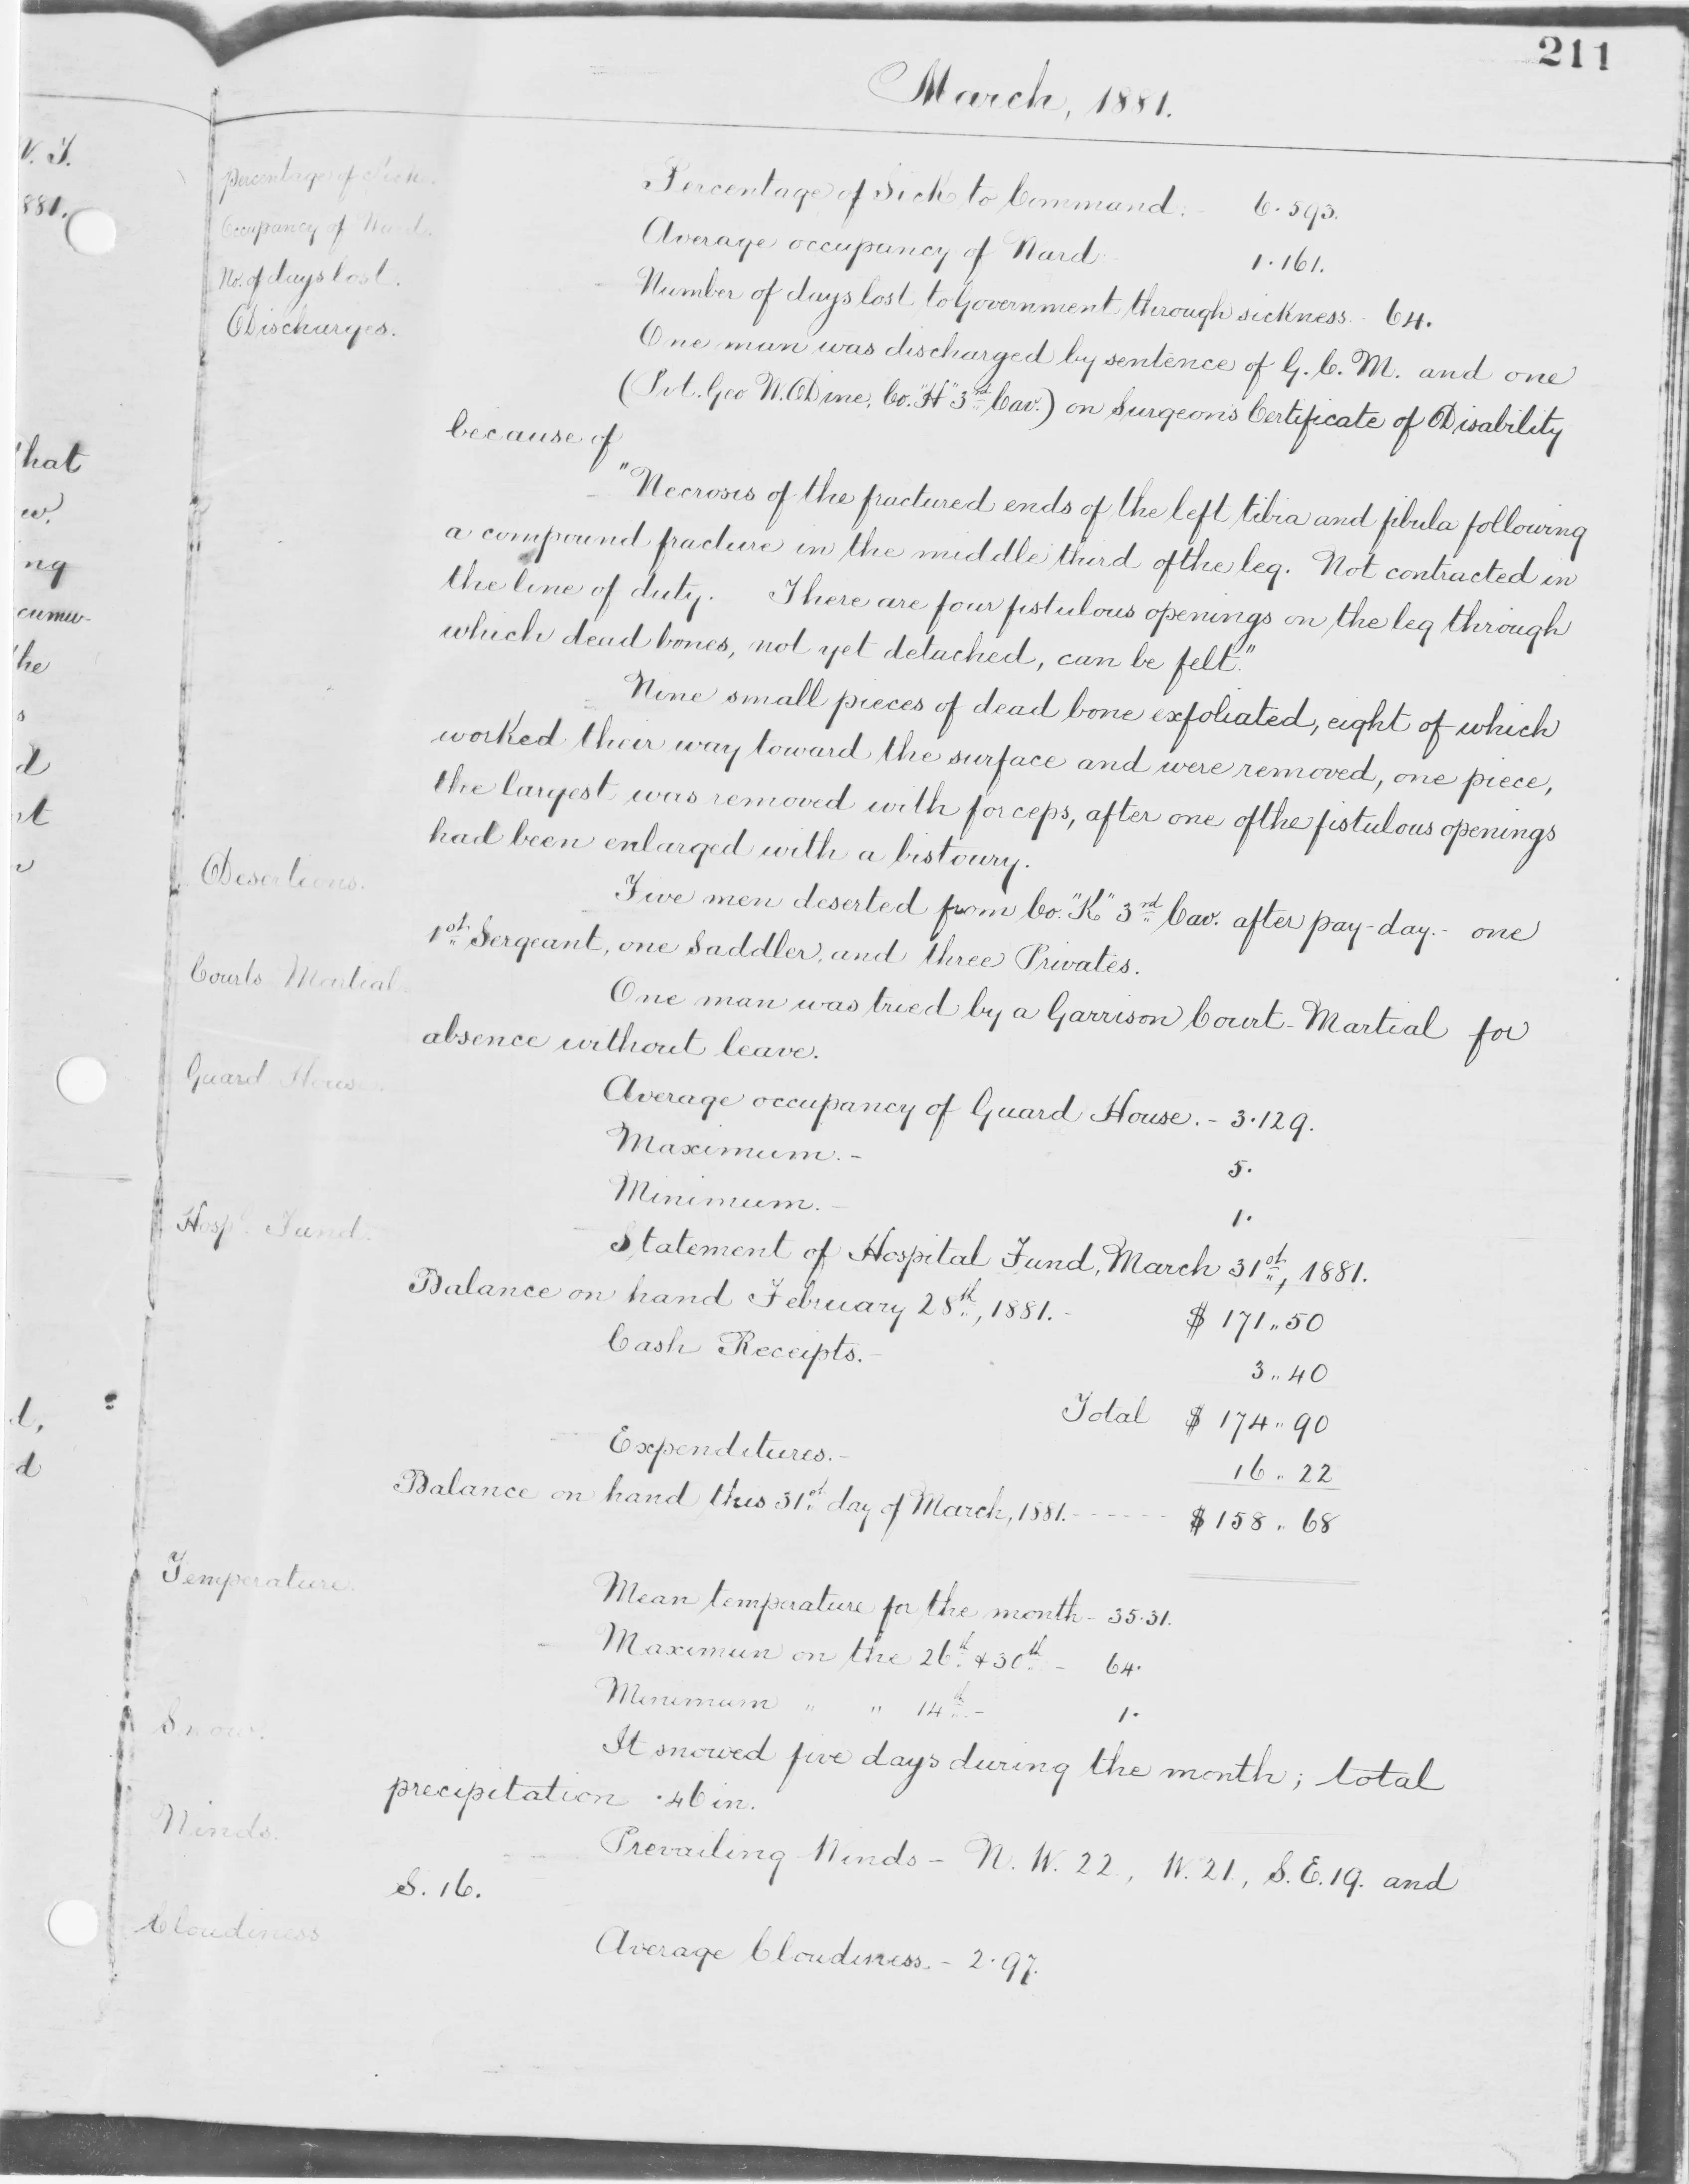 211
March, 1881.
V. T.
881.
Percentage of Sick.
Percentage of Sick to Command. - 6.593.
Occupancy of Ward.
Average occupancy of Ward 1.161.
No. of days lost.
Number of days lost to Government through sickness - 64.
Discharges.
One man was discharged by sentence of G. C. M. and one
(Pvt. Geo W. Dine, Co. "H" 3rd Cav.) on Surgeon's Certificate of Disability
because of
"Necrosis of the fractured ends of the left tibia and fibula following
a compound fracture in the middle third of the leg. Not contracted in
the line of duty. There are four fistulous openings on the leg through
which dead bones, not yet detached, can be felt."
Nine small pieces of dead bone exfoliated, eight of which
worked their way toward the surface and were removed, one piece,
the largest was removed with forceps, after one of the fistulous openings
had been enlarged with a bistoury.
Desertions.
Five men deserted from Co. "K" 3rd Cav. after pay-day. - one
1st Sergeant, one Saddler, and three Privates.
Courts Martial
One man was tried by a Garrison Court-Martial for
absence without leave.
Guard House.
Average occupancy of Guard House. - 3.129.
Maximum. - 5.
Minimum. - 1.
Hospl. Fund.
Statement of Hospital Fund, March 31st, 1881.
Balance on hand February 28th, 1881. - $ 171.. 50
Cash Receipts. - 3.. 40
Total $ 174.. 90
Expenditures. - 16.. 22
Balance on hand this 31st day of March, 1881. - - - - - - $ 158.. 68
Temperature.
Mean temperature for the month - 35.31.
Maximun on the 26th & 30th - 64.
Minimum " " 14th - 1.
Snow.
It snowed five days during the month; total
precipitation .46 in.
Winds.
Prevailing Winds - N. W. 22., W. 21., S. E. 19. and
S. 16.
Cloudiness
Average Cloudiness. - 2.97.